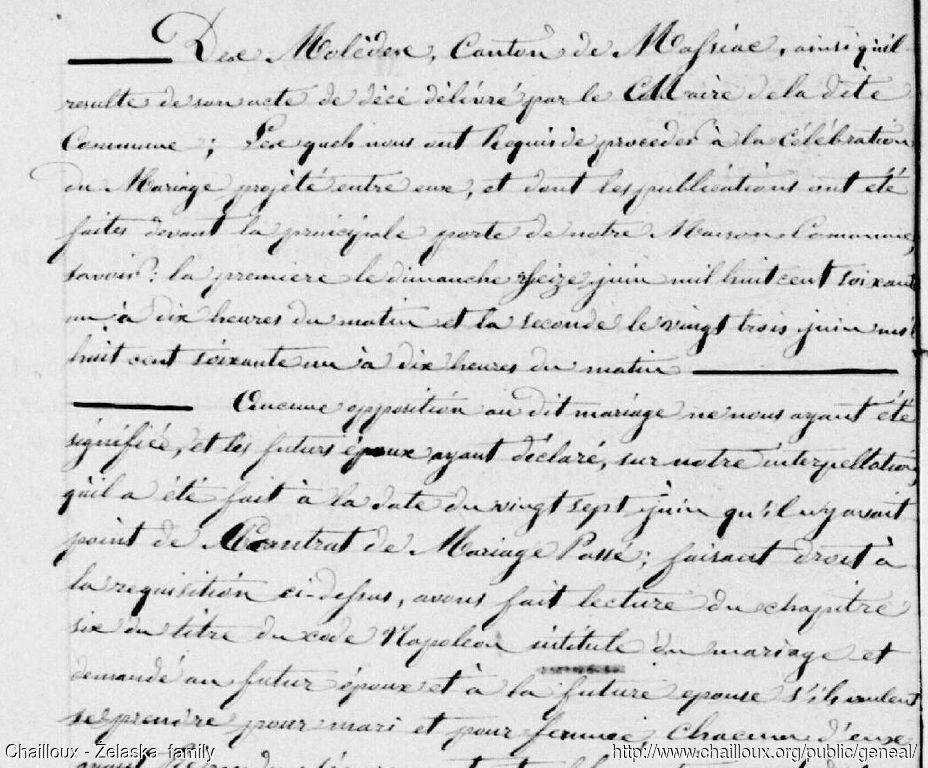 De Molèdes, Canton de Massiac, ainsi qu'il
resulte de son acte de décé délivré par le Maire de la dite
Commune; Lesquels nous ont Requis de proceder à la Célébration
du Mariage projété entre eux, et dont les publications ont été
faites devant la principale porte de notre Maison Commune,
savoir: la premiere le dimanche seize juin mil huit cent soixante
un, à dix heures du matin et la seconde le vingt trois juin mil
huit cent soixante un à dix heures du matin
Aucune opposition au dit mariage ne nous ayant été
signifiée, et les futurs époux ayant déclaré, sur notre interpellation,
qu'il a été fait à la date du vingt sept juin qu'il n'y avait
point de Contrat de Mariage Passé; faisant droit à
la requisition ci-dessus, avons fait lecture du chapitre
six du titre du code Napoleon intitulé du mariage et
demandé au futur époux et à la future epouse s'ils veulent
se prendre pour mari et pour femme, chacun d'eux
Chailloux - Želaska family
http://www.chailloux.org/public/geneal/